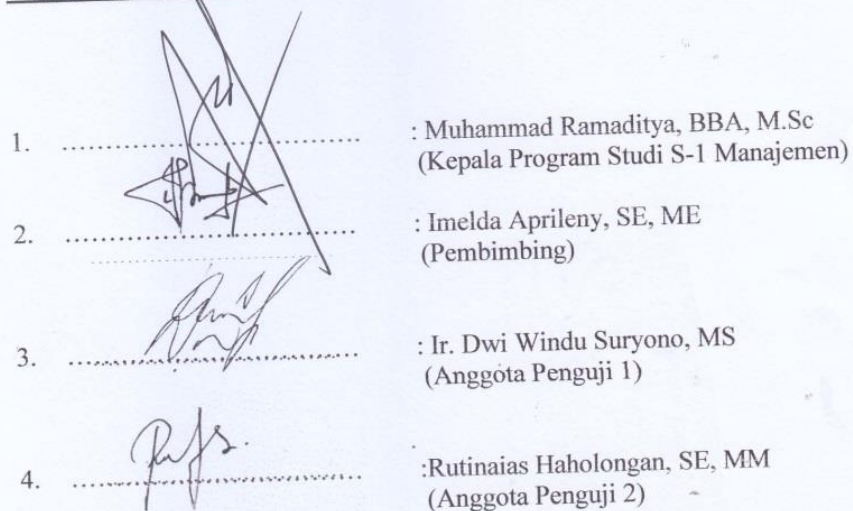 1. ........................................ : Muhammad Ramaditya, BBA, M.Sc
(Kepala Program Studi S-1 Manajemen)
2. ........................................ : Imelda Aprileny, SE, ME
(Pembimbing)
3. ........................................ : Ir. Dwi Windu Suryono, MS
(Anggota Penguji 1)
4. ........................................ :Rutinaias Haholongan, SE, MM
(Anggota Penguji 2)